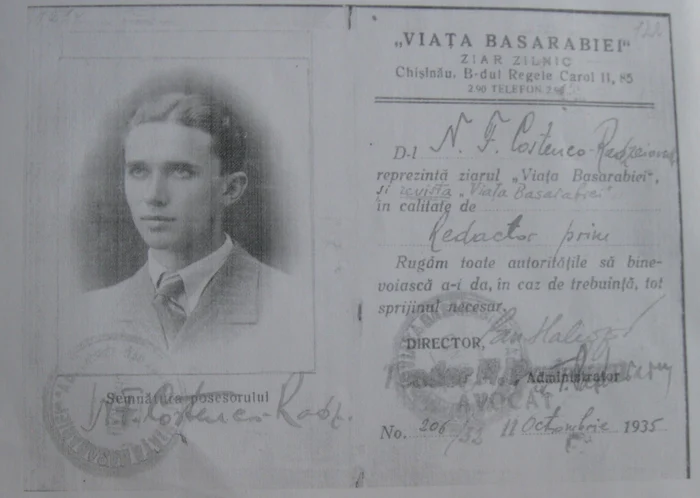 Semnătura posesorului
N. F. Costenco-Radz.
„VIAȚA BASARABIEI“
ZIAR ZILNIC
Chișinău, B-dul Regele Carol II, 85
2.90 TELEFON
D-l N. F. Costenco-Radzeiovsc
reprezintă ziarul „Viața Basarabiei“,
și revista „Viața Basarabiei“
în calitate de
Redactor prim
Rugăm toate autoritățile să bine-
voiască a-i da, în caz de trebuință, tot
sprijinul necesar.
DIRECTOR, Pan Halippa
Administrator
AVOCAT
No. 206/32 11 Octombrie 1935